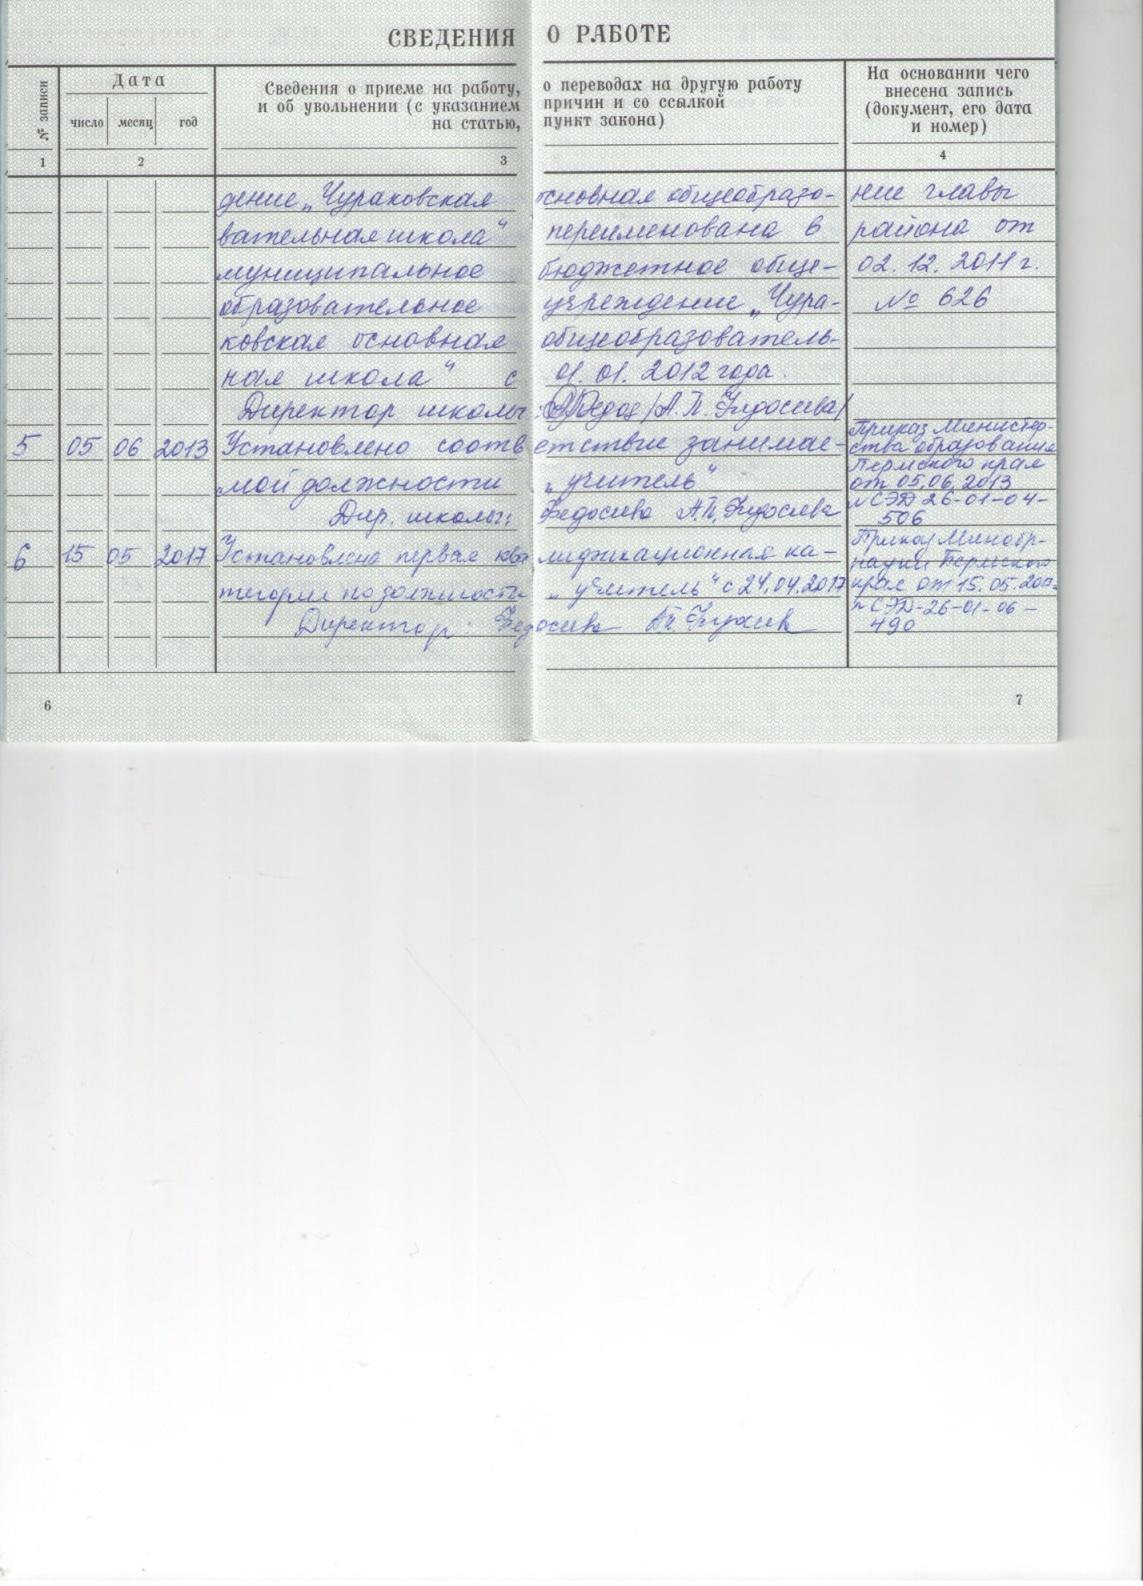 СВЕДЕНИЯ О РАБОТЕ
№ записи
Дата
число месяц год
Сведения о приеме на работу, о переводах на другую работу
и об увольнении (с указанием причин и со ссылкой
на статью, пункт закона)
На основании чего
внесена запись
(документ, его дата
и номер)
1 2 3 4
дение „Чураковская основная общеобразо- ние главы
вательная школа“ переименована в района от
муниципальное бюджетное обще- 02.12.2011 г.
образовательное учреждение „Чура- № 626
ковская основная общеобразователь-
ная школа“ с 01.01.2012 года.
Директор школы: /А.П. Федосеева/
5 05 06 2013 Установлено соответствие занимае-
мой должности „учитель“
Дир. школы: Федосеева А.П.
Приказ Министер-
ства образования
Пермского края
от 05.06.2013
№ СЭД 26-01-04-
506
6 15 05 2017 Установлена первая квалификационная ка-
тегория по должности „учитель“ с 24.04.2017
Директор Федосеева А.П.
Приказ Минобр-
науки Пермского
края от 15.05.2017
№ СЭД-26-01-06-
490
6 7